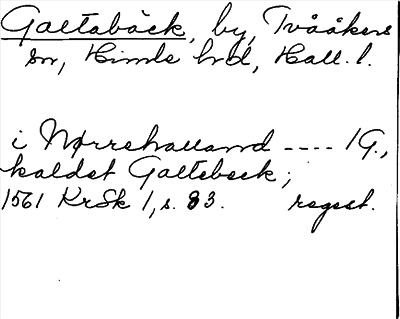 Galtabäck, by, Tvååkers
sn, Himle hrd, Hall. l.
i Nørrehalland ---- 1 G.,
kaldet Galtebeck;
1561 KrSk 1, s. 83. regest.